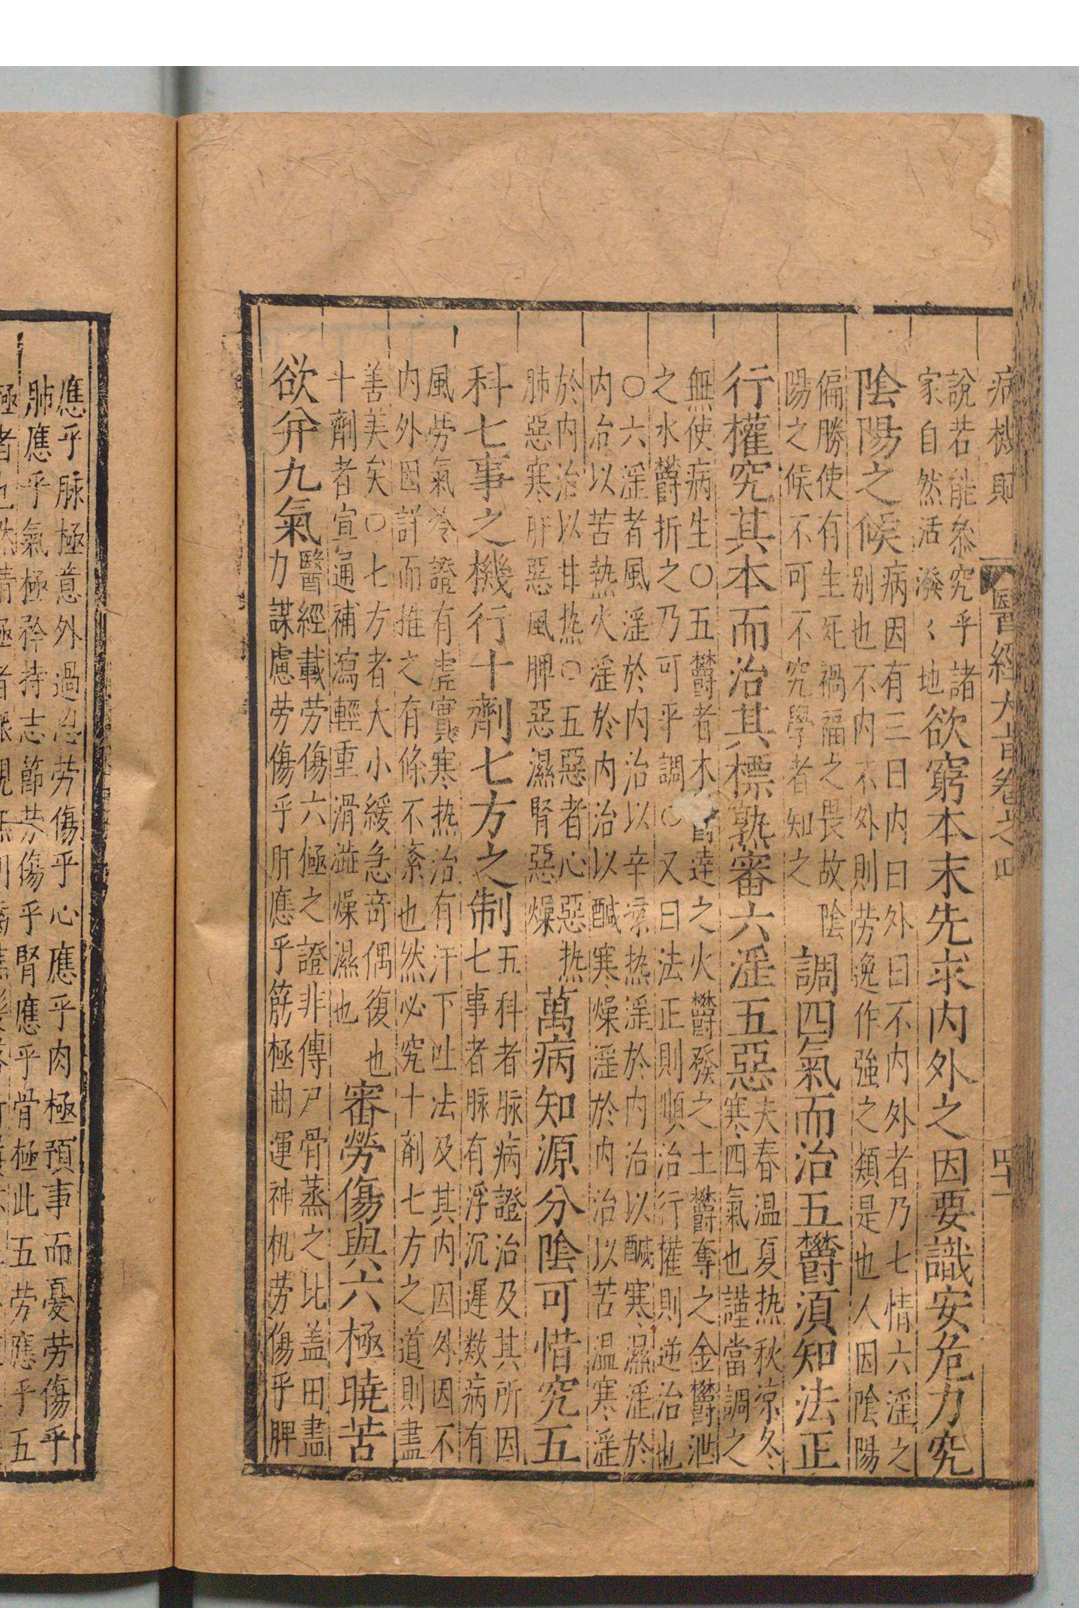 病機賦 醫經大旨卷之四 四十一
說若能叅究乎諸
家自然活潑〻地
欲窮本末先求內外之因要識安危力究
陰陽之候
病因有三曰內曰外曰不內外者乃七情六淫之
别也不內不外則劳逸作強之類是也人因陰陽
偏勝使有生死禍福之畏故陰
陽之候不可不究學者知之
調四氣而治五欝須知法正
行權究其本而治其標熟審六淫五惡
夫春温夏热秋凉冬
寒四氣也謹當調之
無使病生〇五欝者木欝達之火欝發之土欝奪之金欝泄
之水欝折之乃可乎調〇又曰法正則順治行權則逆治也
〇六淫者風淫於內治以辛凉热淫於內治以醎寒濕淫於
內治以苦熱火淫於內治以醎寒燥淫於內治以苦温寒淫
於內治以甘热〇五惡者心惡热
肺惡寒肝惡風脾惡濕腎惡燥
萬病知源分陰可惜究五
科七事之機行十劑七方之制
五科者脉病證治及其所因
七事者脉有浮沉遲数病有
風劳氣冷證有虚實寒热治有汗下吐法及其內因外因不
內外因詳而推之有條不紊也然必究十剤七方之道則盡
善美矣〇七方者大小緩急竒偶復也
十劑者宣通補瀉輕重滑澁燥濕也
審勞傷與六極曉苦
欲弁九氣
醫經載劳傷六極之證非傳尸骨蒸之比盖田盡
力謀慮劳傷乎肝應乎筋極曲運神机劳傷乎脾
應乎脉極意外過思劳傷乎心應乎肉極預事而憂劳傷乎
肺應乎氣極矜持志節劳傷乎腎應乎骨極此五劳應乎五